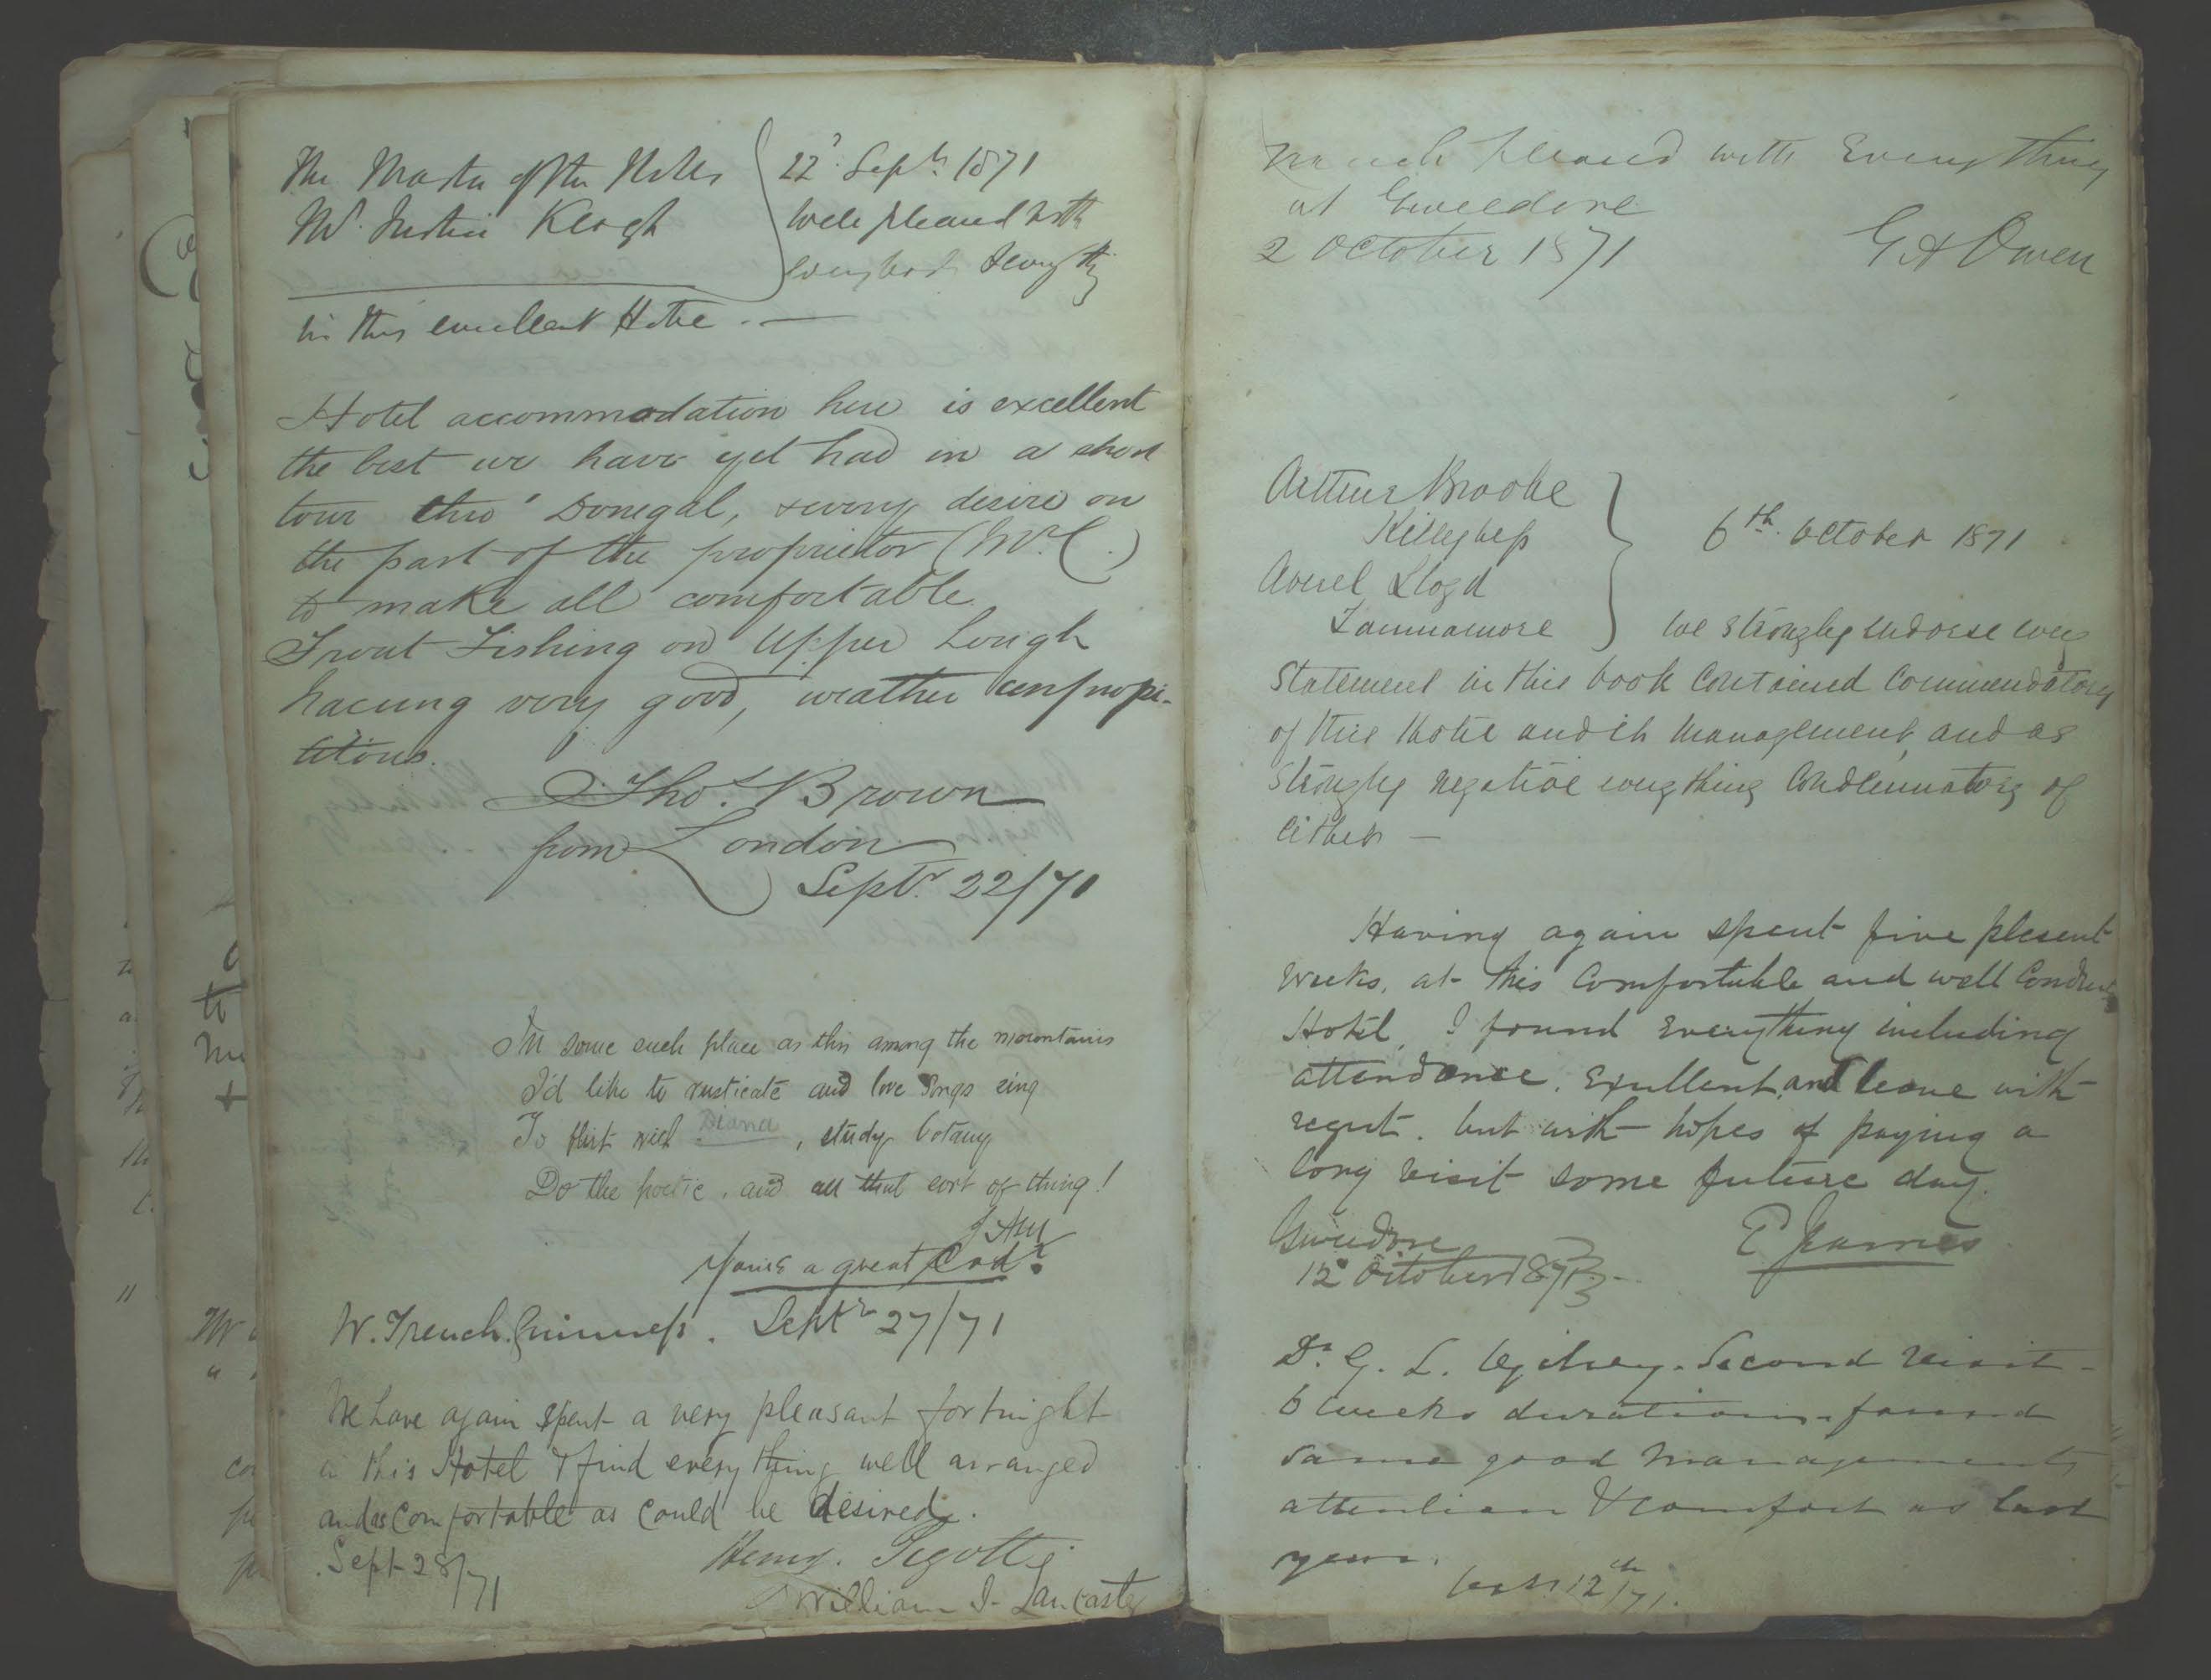 The Master of the Rolls
Mr. Justice Keogh
22d. Septr. 1871
Well pleased with
everybody & everything
in this excellent Hotel.
Hotel accommodation here is excellent
the best we have yet had in a short
tour thro' Donegal, & every desire on
the part of the proprietor (Mr. C.)
to make all comfortable.
Trout Fishing on Upper Lough
Nacung very good, weather unpropi-
tious.
Thos. Brown
from London
Septr. 22/71
In some such place as this among the mountains
I'd like to rusticate and love songs sing
To flirt with Diana, study botany
Do the poetic, and all that sort of thing!
You're a great Cad!
W. French Guinness. Septr 27/71
We have again spent a very pleasant fortnight
in this Hotel & find every thing well arranged
and as comfortable as could be desired.
Sept 28/71
Henry. Pigott
William J. Lancaster
Much pleased with Every thing
at Gweedore
2 October 1871
G A Owen
Arthur Brooke
Killybegs
Averel Lloyd
Tamnamore
6th. October 1871
We strongly endorse every
statement in this book contained commendatory
of this Hotel and its management, and as
strongly negative everything condemnatory of
either —
Having again spent five plesent
weeks, at this Comfortable and well Conduc
Hotel, I found Everything including
attendance. Exullent, and leave with
regret. but with hopes of paying a
long visit some future day.
Gweedore
12 October 1871
E James
Dr. G. L. Ogilvey. Second visit -
6 weeks duration. found
same good management
attention & comfort as last
year.
Octr. 12th/71.